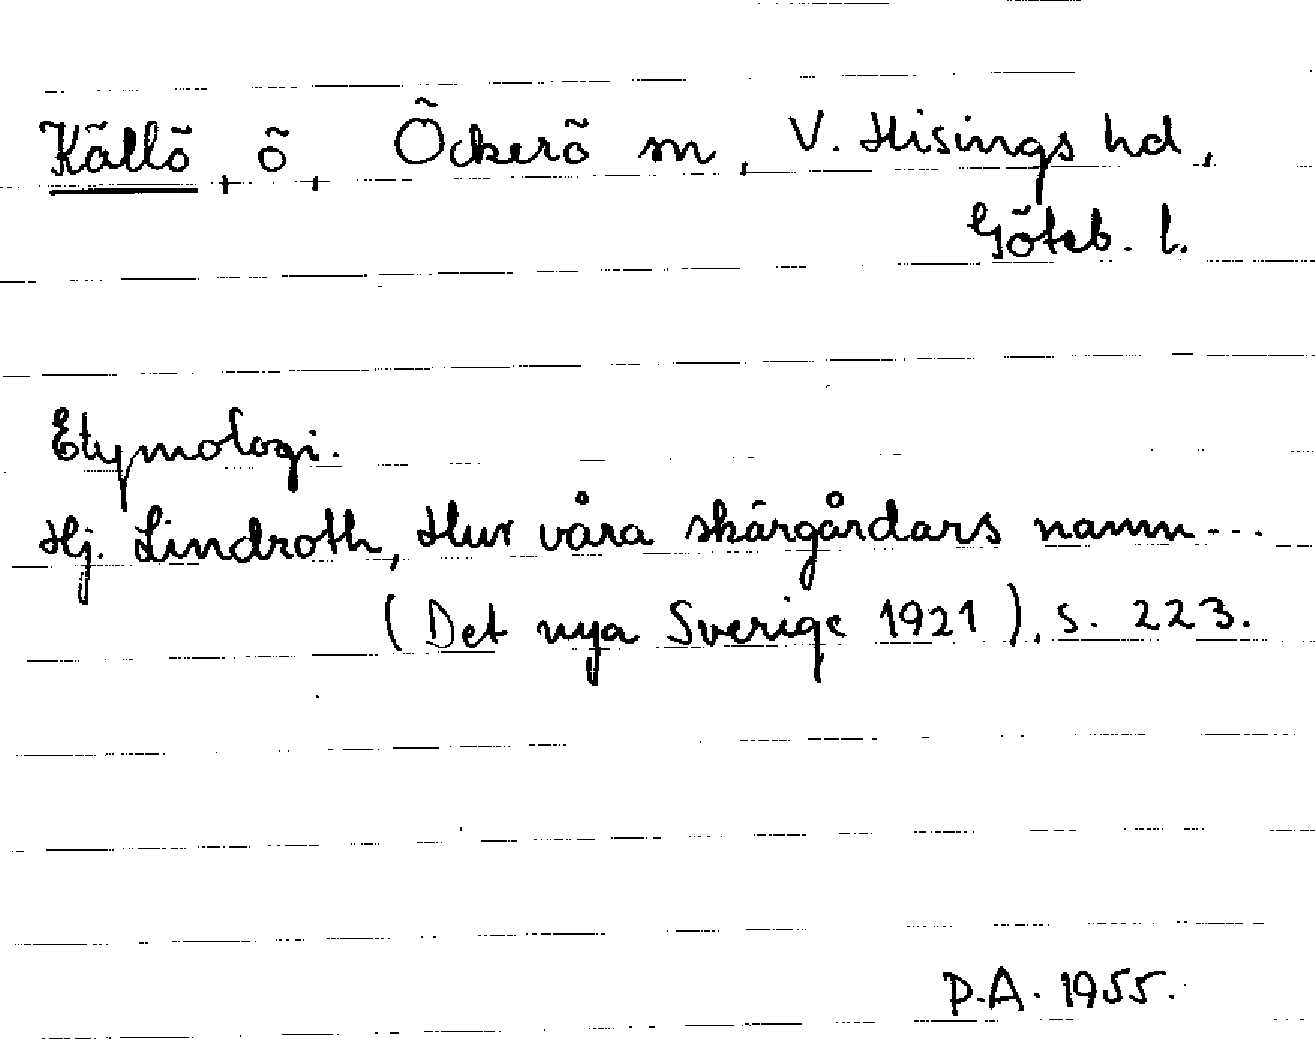 Källö, ö, Öckerö sn, V. Hisings hd,
Göteb. l.
Etymologi.
Hj. Lindroth, Hur våra skärgårdars namn...
(Det nya Sverige 1921), s. 223.
P.A. 1955.